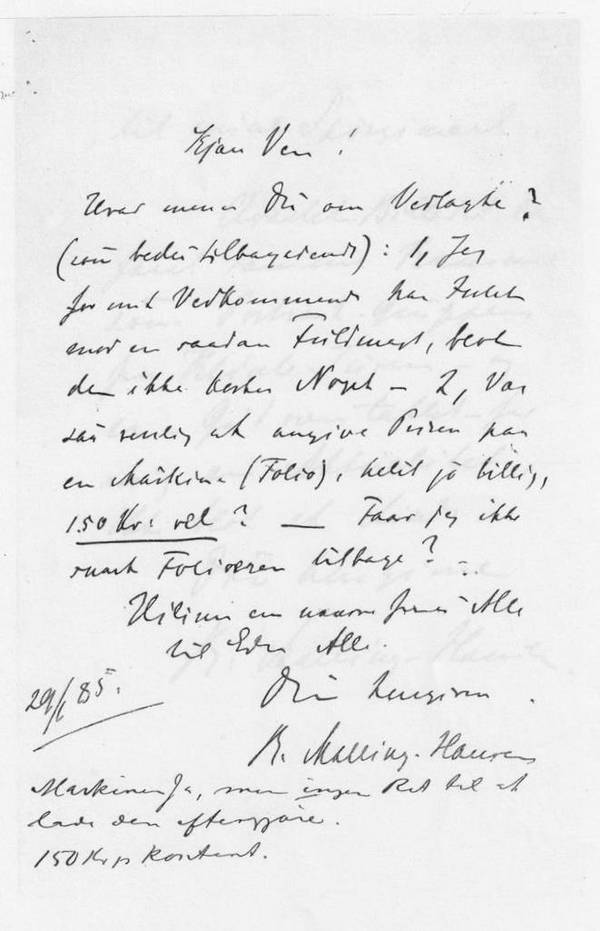 Kjære Ven!
Hvad mener Du om Vedlagte?
(som bedes tilbagesendt): 1, Jeg
for mit Vedkommende har Intet
mod en saadan Fuldmagt, blot
den ikke koster Noget – 2, Vær
saa venlig at angive Prisen paa
en Maskine (Folio), helst jo billig,
150 Kr: vel? — Faar jeg ikke
snart Folioeren tilbage?
Hilsen en naar fra Alle
til Eder Alle.
Din hengivne
29/1 85.
R. Malling-Hansen
Maskinen Ja, men ingen Ret til at
lade den eftergjøre.
150 Kr pr kontant.